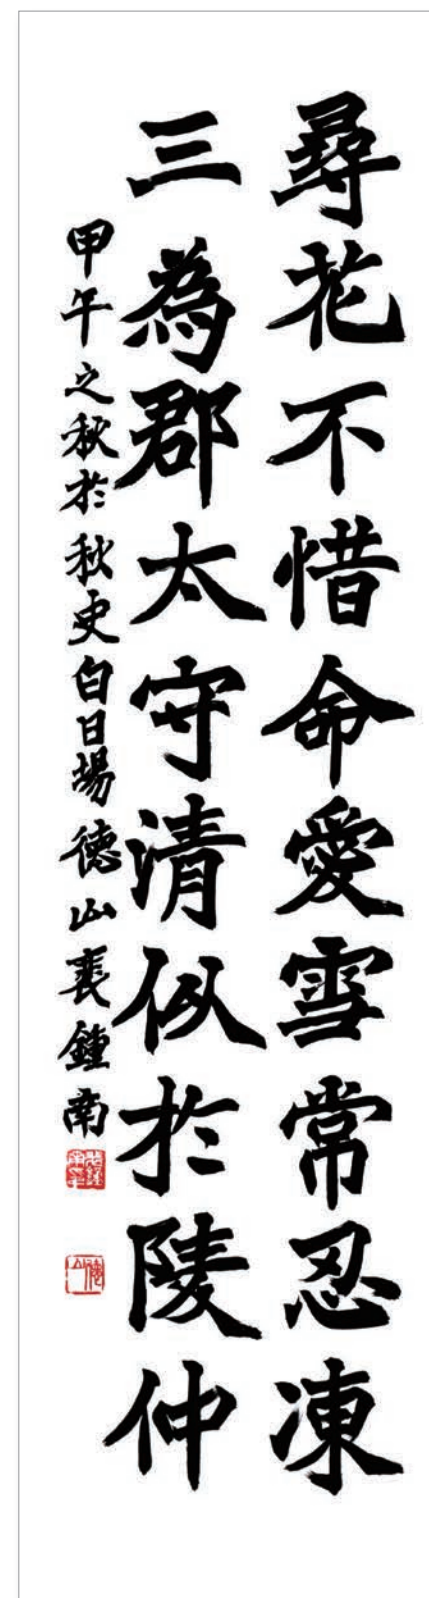 尋花不惜命愛雪常忍凍
三為郡太守清似於陵仲
甲午之秋於秋史白日場德山裵鍾南